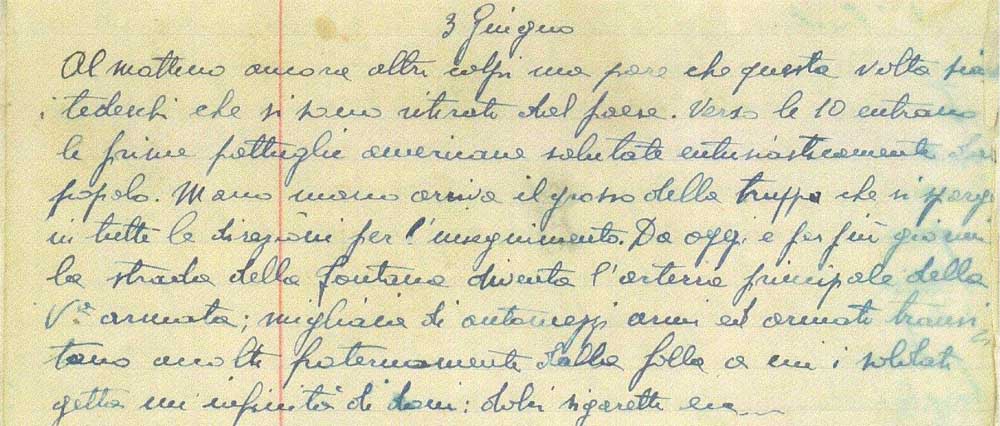 3 Giugno
Al mattino ancora altri colpi ma pare che questa volta sia
i tedeschi che si sono ritirati dal paese. Verso le 10 entrano
le prime pattuglie americane salutate entusiasticamente dal
popolo. Mano mano arriva il grosso della truppa che si sparge
in tutte le direzioni per l'inseguimento. Da oggi e per più giorni
la strada della Fontana diventa l'arteria principale della
Vª armata; migliaia di automezzi armi ed armati transi
tano accolti fraternamente dalla folla a cui i soldati
getta un'infinità di doni: dolci sigarette ecc...